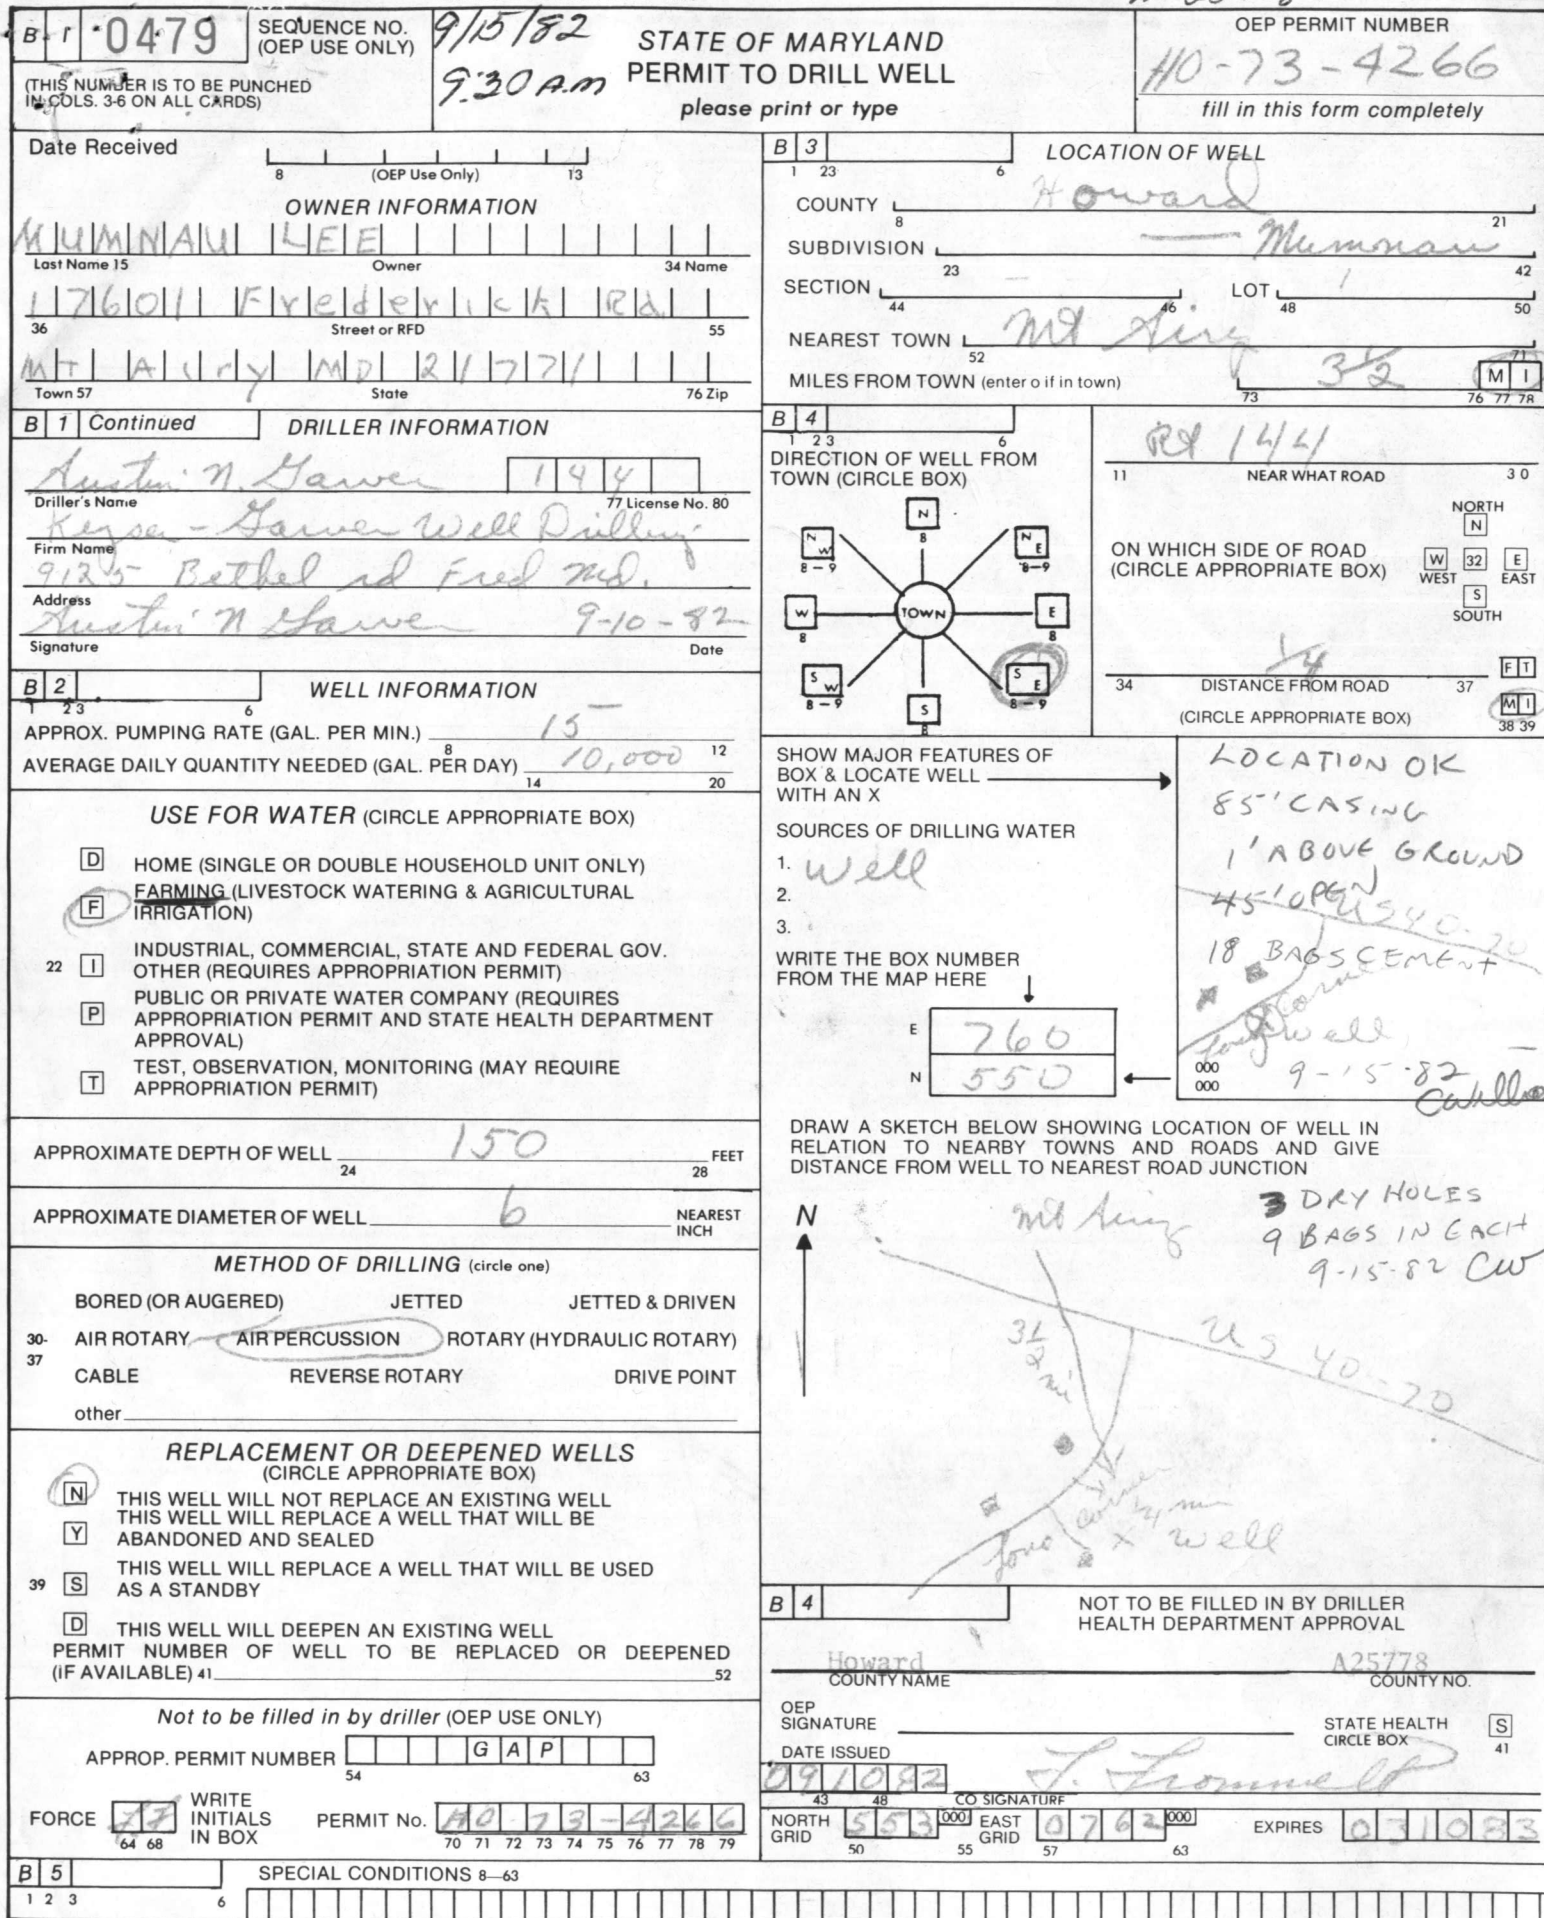 B 1 0479 SEQUENCE NO. (OEP USE ONLY)
(THIS NUMBER IS TO BE PUNCHED
IN COLS. 3-6 ON ALL CARDS)
9/15/82
9:30 A.m
STATE OF MARYLAND
PERMIT TO DRILL WELL
please print or type
OEP PERMIT NUMBER
HO-73-4266
fill in this form completely
Date Received
8 (OEP Use Only) 13
OWNER INFORMATION
MUMNAU LEE
Last Name 15 Owner 34 Name
17601 Frederick Rd
36 Street or RFD 55
MT Airy MD 21771
Town 57 State 76 Zip
B 1 Continued DRILLER INFORMATION
Austin N. Garver 144
Driller's Name 77 License No. 80
Keyser - Garver Well Drilling
Firm Name
9125 Bethel rd Fred Md.
Address
Austin N Garver 9-10-82
Signature Date
B 2 WELL INFORMATION
1 2 3 6
APPROX. PUMPING RATE (GAL. PER MIN.) 15
8 12
AVERAGE DAILY QUANTITY NEEDED (GAL. PER DAY) 10,000
14 20
USE FOR WATER (CIRCLE APPROPRIATE BOX)
D HOME (SINGLE OR DOUBLE HOUSEHOLD UNIT ONLY)
F FARMING (LIVESTOCK WATERING & AGRICULTURAL
IRRIGATION)
22 I INDUSTRIAL, COMMERCIAL, STATE AND FEDERAL GOV.
OTHER (REQUIRES APPROPRIATION PERMIT)
P PUBLIC OR PRIVATE WATER COMPANY (REQUIRES
APPROPRIATION PERMIT AND STATE HEALTH DEPARTMENT
APPROVAL)
T TEST, OBSERVATION, MONITORING (MAY REQUIRE
APPROPRIATION PERMIT)
APPROXIMATE DEPTH OF WELL 150 FEET
24 28
APPROXIMATE DIAMETER OF WELL 6 NEAREST
INCH
METHOD OF DRILLING (circle one)
BORED (OR AUGERED) JETTED JETTED & DRIVEN
30-37 AIR ROTARY AIR PERCUSSION ROTARY (HYDRAULIC ROTARY)
CABLE REVERSE ROTARY DRIVE POINT
other
REPLACEMENT OR DEEPENED WELLS
(CIRCLE APPROPRIATE BOX)
N THIS WELL WILL NOT REPLACE AN EXISTING WELL
Y THIS WELL WILL REPLACE A WELL THAT WILL BE
ABANDONED AND SEALED
39 S THIS WELL WILL REPLACE A WELL THAT WILL BE USED
AS A STANDBY
D THIS WELL WILL DEEPEN AN EXISTING WELL
PERMIT NUMBER OF WELL TO BE REPLACED OR DEEPENED
(IF AVAILABLE) 41 52
Not to be filled in by driller (OEP USE ONLY)
APPROP. PERMIT NUMBER G A P
54 63
FORCE WRITE
INITIALS
IN BOX
64 68
PERMIT No. HO-73-4266
70 71 72 73 74 75 76 77 78 79
B 3 LOCATION OF WELL
1 23 6
COUNTY Howard
8 21
SUBDIVISION — Mumnau
23 42
SECTION LOT 1
44 46 48 50
NEAREST TOWN Mt Airy
52 71
MILES FROM TOWN (enter o if in town) 3 1/2 M I
73 76 77 78
B 4
1 2 3 6
DIRECTION OF WELL FROM
TOWN (CIRCLE BOX)
N
8
N W
8-9
N E
8-9
W
8
TOWN
E
8
S W
8-9
S E
8-9
S
8
Rt 144
11 NEAR WHAT ROAD 30
ON WHICH SIDE OF ROAD
(CIRCLE APPROPRIATE BOX)
NORTH
N
W 32 E
WEST EAST
S
SOUTH
1/4 F T
34 DISTANCE FROM ROAD 37
(CIRCLE APPROPRIATE BOX) M I
38 39
SHOW MAJOR FEATURES OF
BOX & LOCATE WELL
WITH AN X
SOURCES OF DRILLING WATER
1. Well
2.
3.
WRITE THE BOX NUMBER
FROM THE MAP HERE
E 760
N 550
LOCATION OK
85' CASING
1' ABOVE GROUND
45' OPEN
US 40-70
18 BAGS CEMENT
well
000
000
9-15-82
DRAW A SKETCH BELOW SHOWING LOCATION OF WELL IN
RELATION TO NEARBY TOWNS AND ROADS AND GIVE
DISTANCE FROM WELL TO NEAREST ROAD JUNCTION
N
Mt Airy
3 DRY HOLES
9 BAGS IN EACH
9-15-82 CW
3 1/2 mi
US 40-70
1/4 mi
X well
B 4 NOT TO BE FILLED IN BY DRILLER
HEALTH DEPARTMENT APPROVAL
Howard A25778
COUNTY NAME COUNTY NO.
OEP
SIGNATURE
STATE HEALTH
CIRCLE BOX S
41
DATE ISSUED
091082
43 48 CO SIGNATURE
NORTH
GRID 553 000
50 55
EAST
GRID 0762 000
57 63
EXPIRES 031083
B 5 SPECIAL CONDITIONS 8-63
1 2 3 6